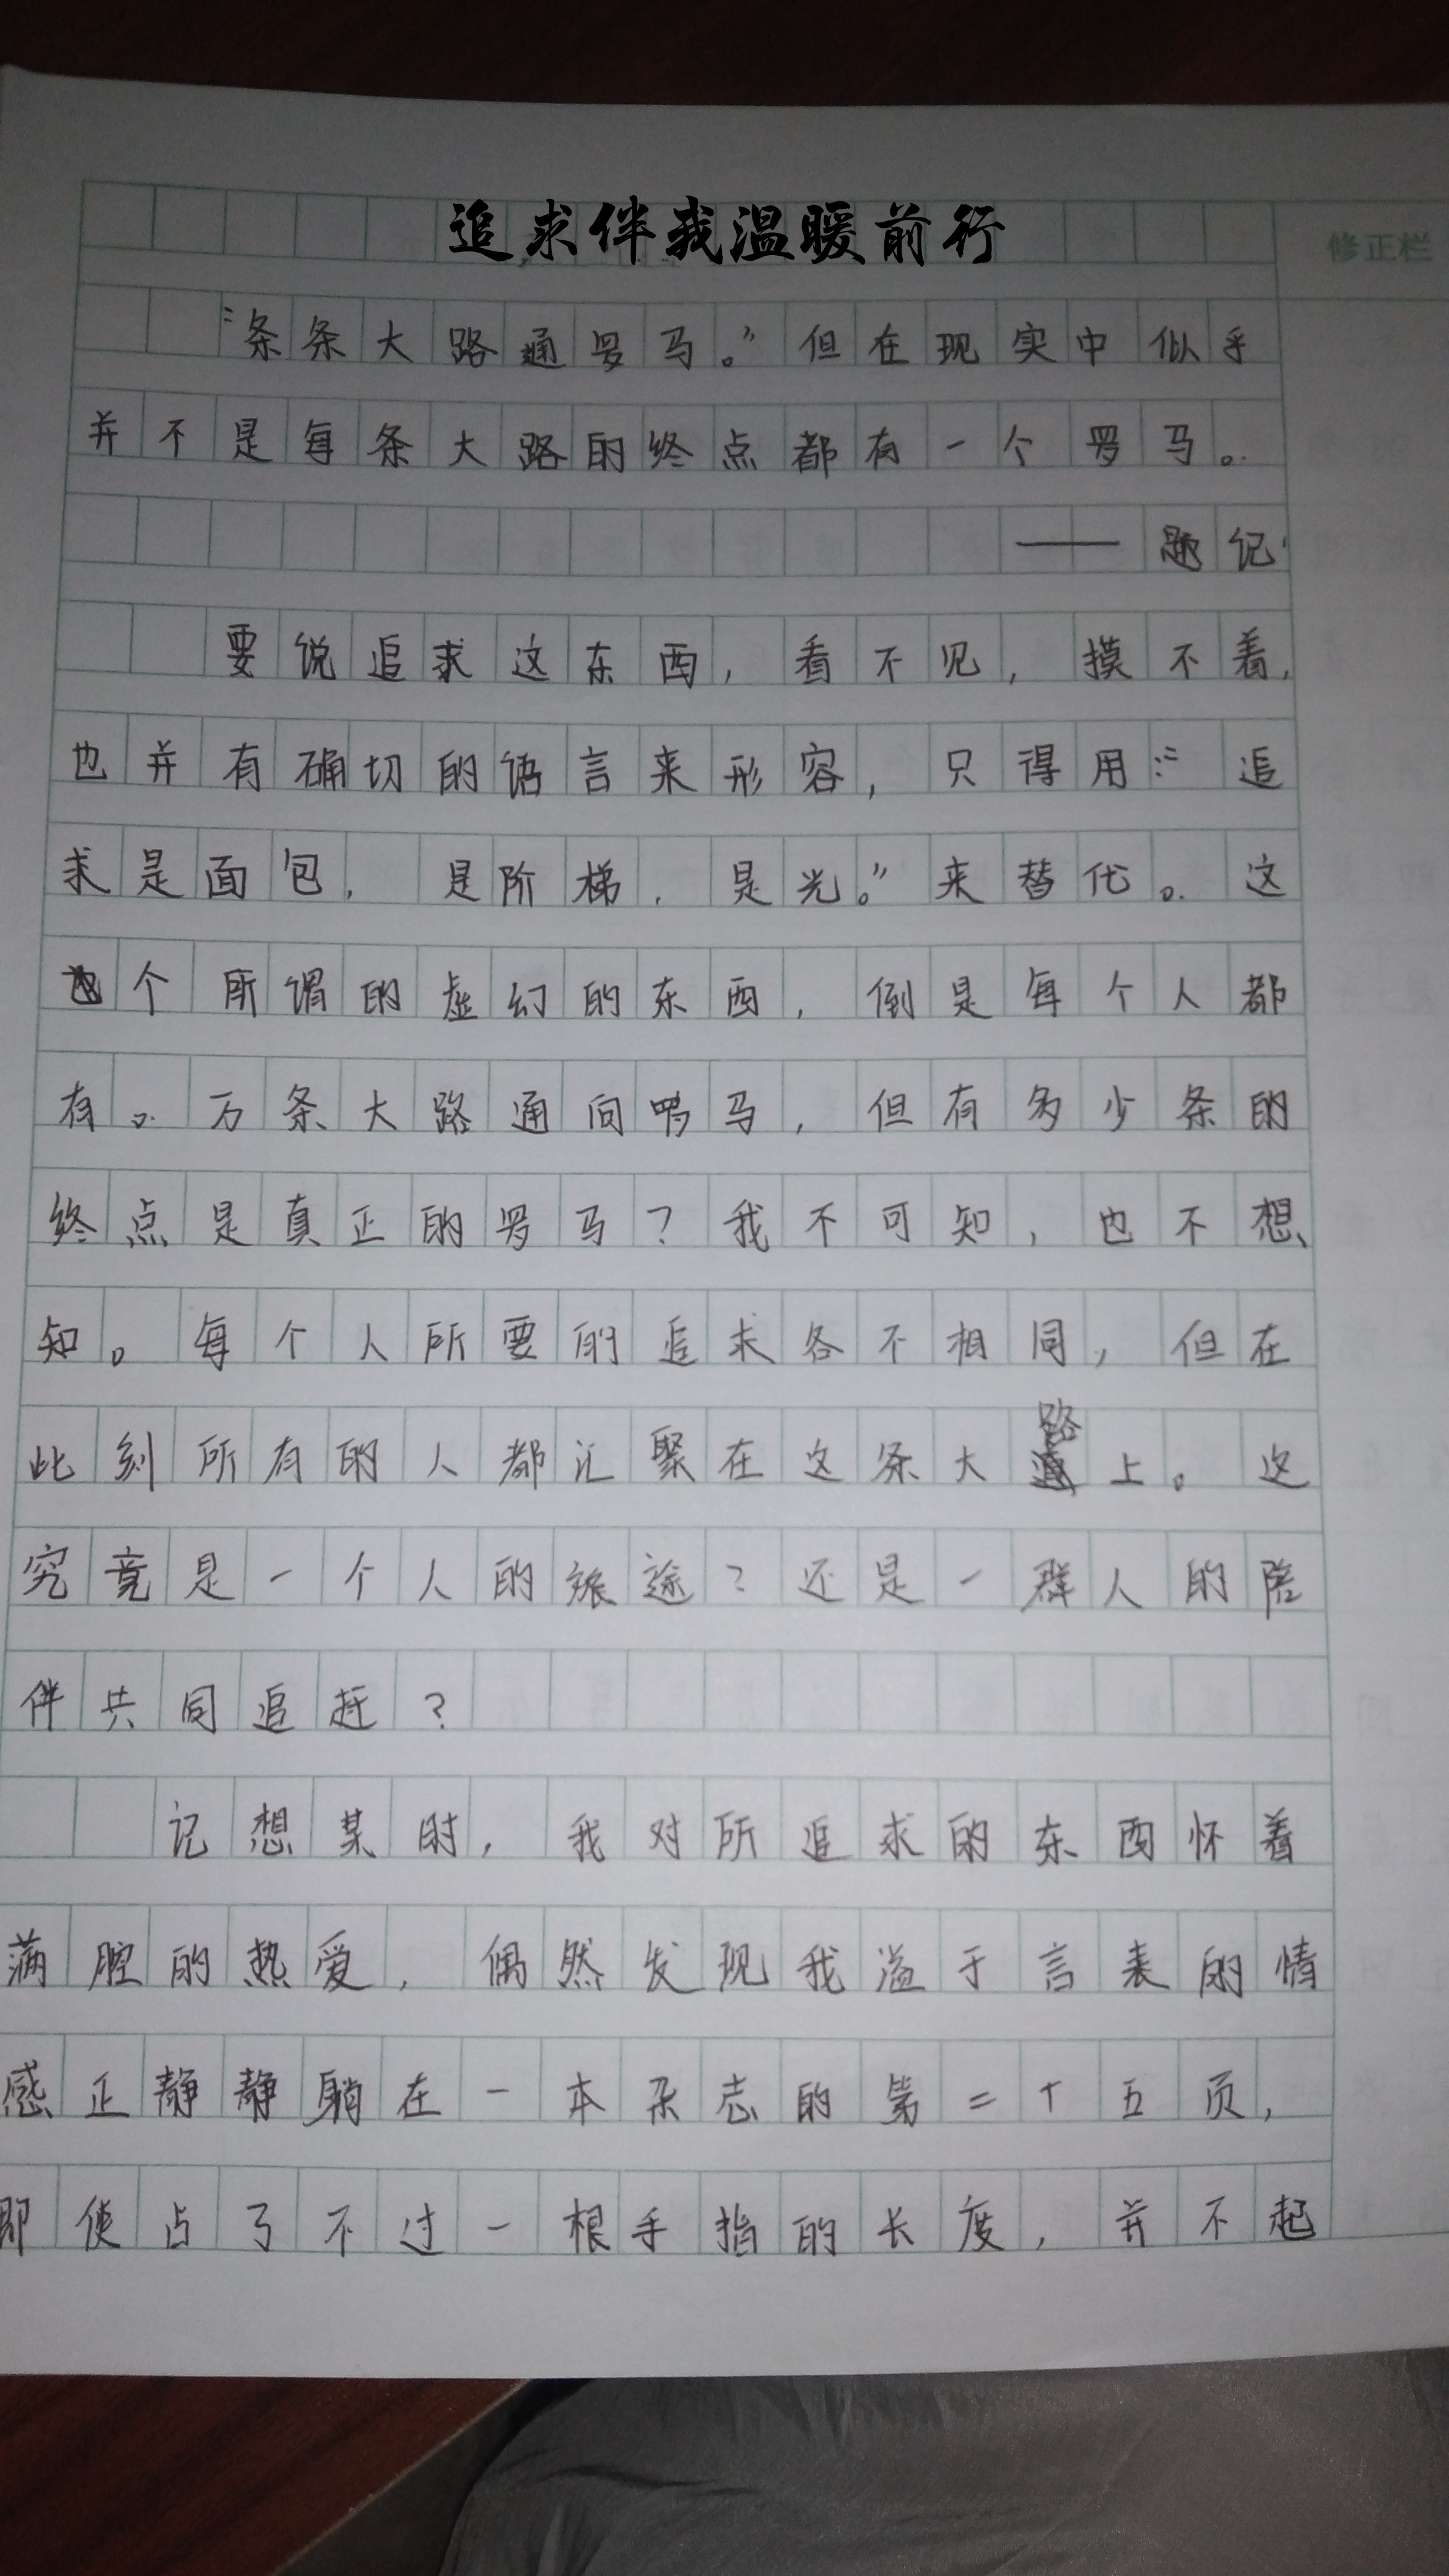 追求伴我温暖前行
修正栏
“条条大路通罗马。”但在现实中似乎
并不是每条大路的终点都有一个罗马。
——题记
要说追求这东西，看不见，摸不着，
也并有确切的语言来形容，只得用：“追
求是面包，是阶梯，是光。”来替代。这
个所谓的虚幻的东西，倒是每个人都
有。万条大路通向罗马，但有多少条的
终点是真正的罗马？我不可知，也不想
知。每个人所要的追求各不相同，但在
此刻所有的人都汇聚在这条大路上。这
究竟是一个人的旅途？还是一群人的陪
伴共同追赶？
记想某时，我对所追求的东西怀着
满腔的热爱，偶然发现我溢于言表的情
感正静静躺在一本杂志的第二十五页，
即使占了不过一根手指的长度，并不起